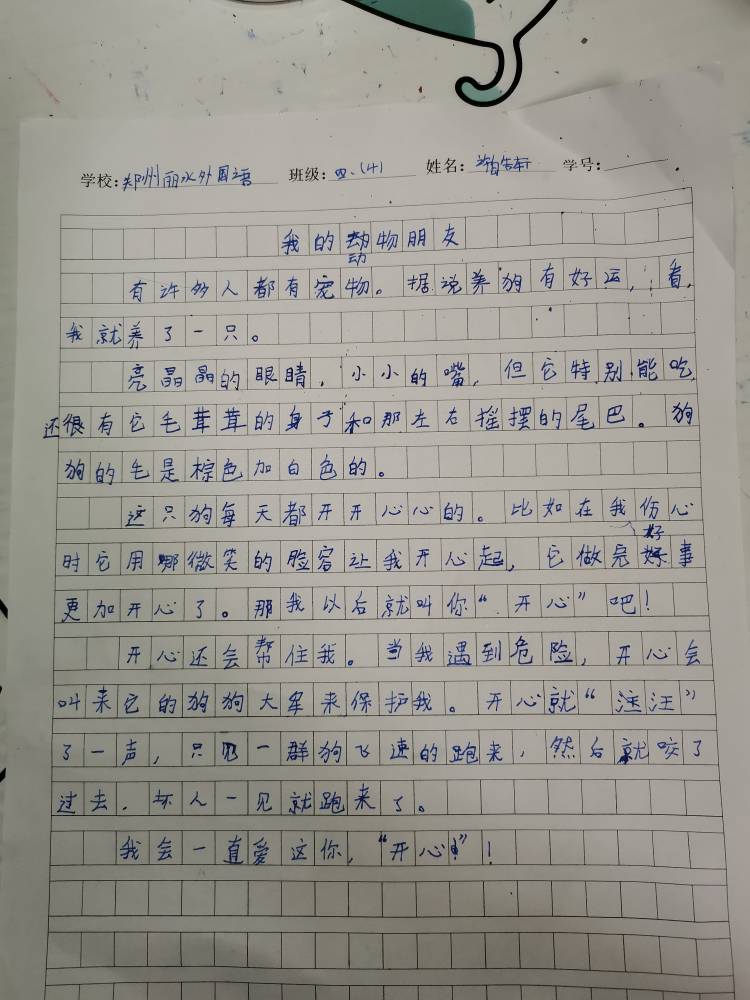 学校:郑州丽水外国语 班级:四.(4) 姓名: 学号:
我的动物朋友
有许多人都有宠物。据说养狗有好运,看,
我就养了一只。
亮晶晶的眼睛,小小的嘴,但它特别能吃,
还很有它毛茸茸的身子和那左右摇摆的尾巴。狗
狗的毛是棕色加白色的。
这只狗每天都开开心心的。比如在我伤心
时它用哪微笑的脸容让我开心起,它做完好事
更加开心了。那我以后就叫你“开心”吧!
开心还会帮住我。当我遇到危险,开心会
叫来它的狗狗大军来保护我。开心就“汪汪”
了一声,只见一群狗飞速的跑来,然后就咬了
过去.坏人一见就跑来了。
我会一直爱这你,“开心!”!